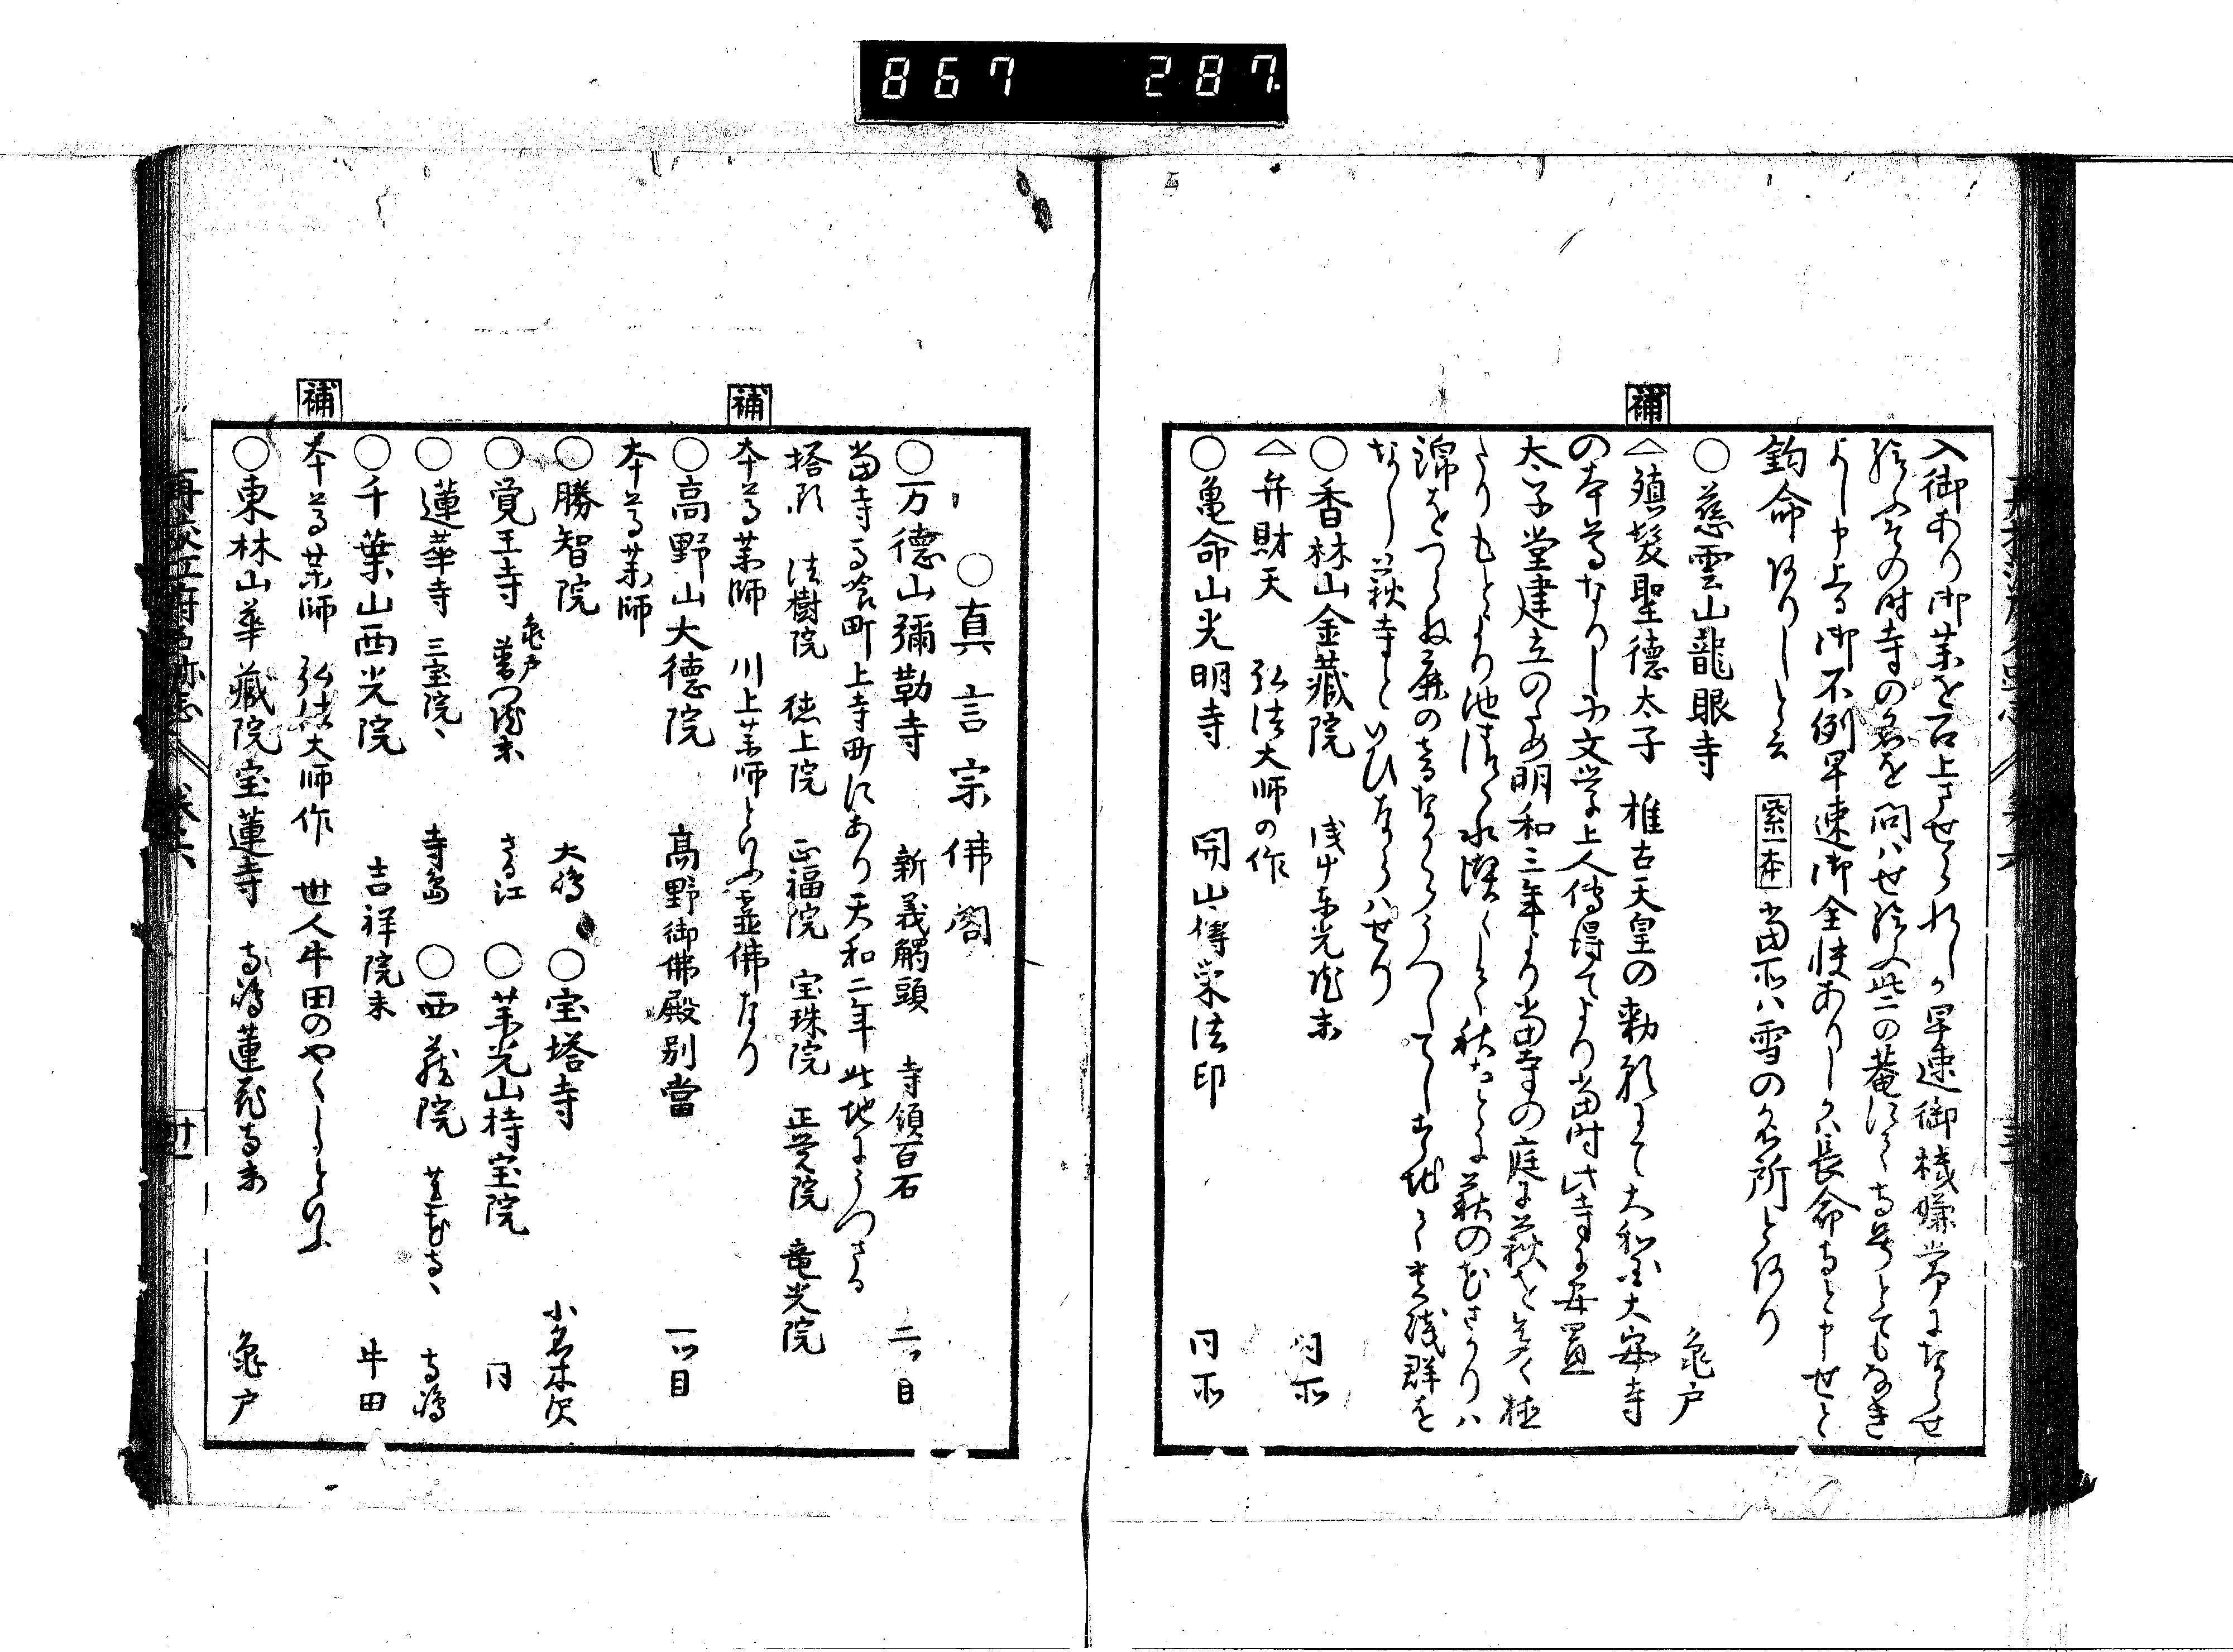 867 287
入御あり御薬を召上させられしか早速御機嫌常になせ
給ふその時寺の名を問ハせ給ふ此の菴にして寺号とてもなき
よし申上る御不例早速御全快ありしかハ長命寺と申せと
鈞命ありしと云 紫一本 当所ハ雪の名所とあり
○慈雲山龍眼寺 亀戸
補
△殖髪聖徳太子 推古天皇の勅願にて大和国大安寺
の本尊なりしか文学上人傳得てより当時此寺に安置
太子堂建立のため明和三年より当寺の庭に萩を多く植
たりもとより池清く水潔くして秋なとは萩の花さかりハ
錦をつらね
なし萩寺といひならハせり
○香林山金蔵院 浅中東光院末 同所
△弁財天 弘法大師の作
○亀命山光明寺 開山傳栄法印 同所
○真言宗佛閣
○万徳山彌勒寺 新義觸頭 寺領百石 二ツ目
当寺る喰町上寺町にあり天和二年此地にうつさる
塔頭 法樹院 徳上院 正福院 宝珠院 正覚院 竜光院
補
本尊薬師 川上薬師といふ霊佛なり
○高野山大徳院 高野御佛殿別當 一ツ目
本尊薬師
○勝智院 大嶋 ○宝塔寺 小名木沢
○覚王寺 亀戸普門院末 さる江 ○薬光山持宝院 同
○蓮華寺 三宝院、 寺島 ○西蔵院 蓮花寺、 寺嶋
○千葉山西光院 吉祥院末 牛田
補
本尊薬師 弘法大師作 世人牛田のやくしといふ
○東林山華蔵院宝蓮寺 寺嶋蓮花寺末 亀戸
再校江府名跡志 巻六 廿一